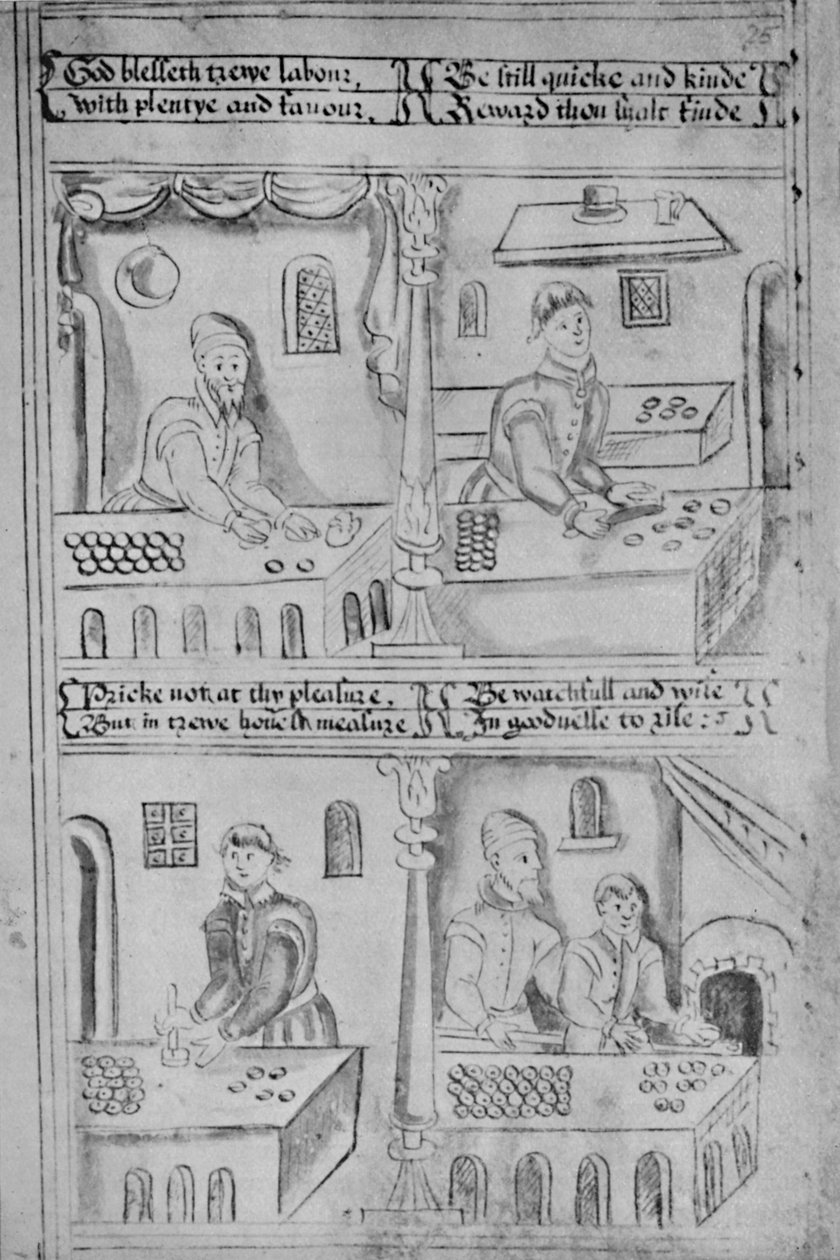 25
God blesseth trewe labour,
with plentye and favour,
Be still quicke and kinde
Reward thou shalt finde
Pricke not at thy pleasure,
But in trewe honest measure
Be watchfull and wise
In goodnesse to rise :